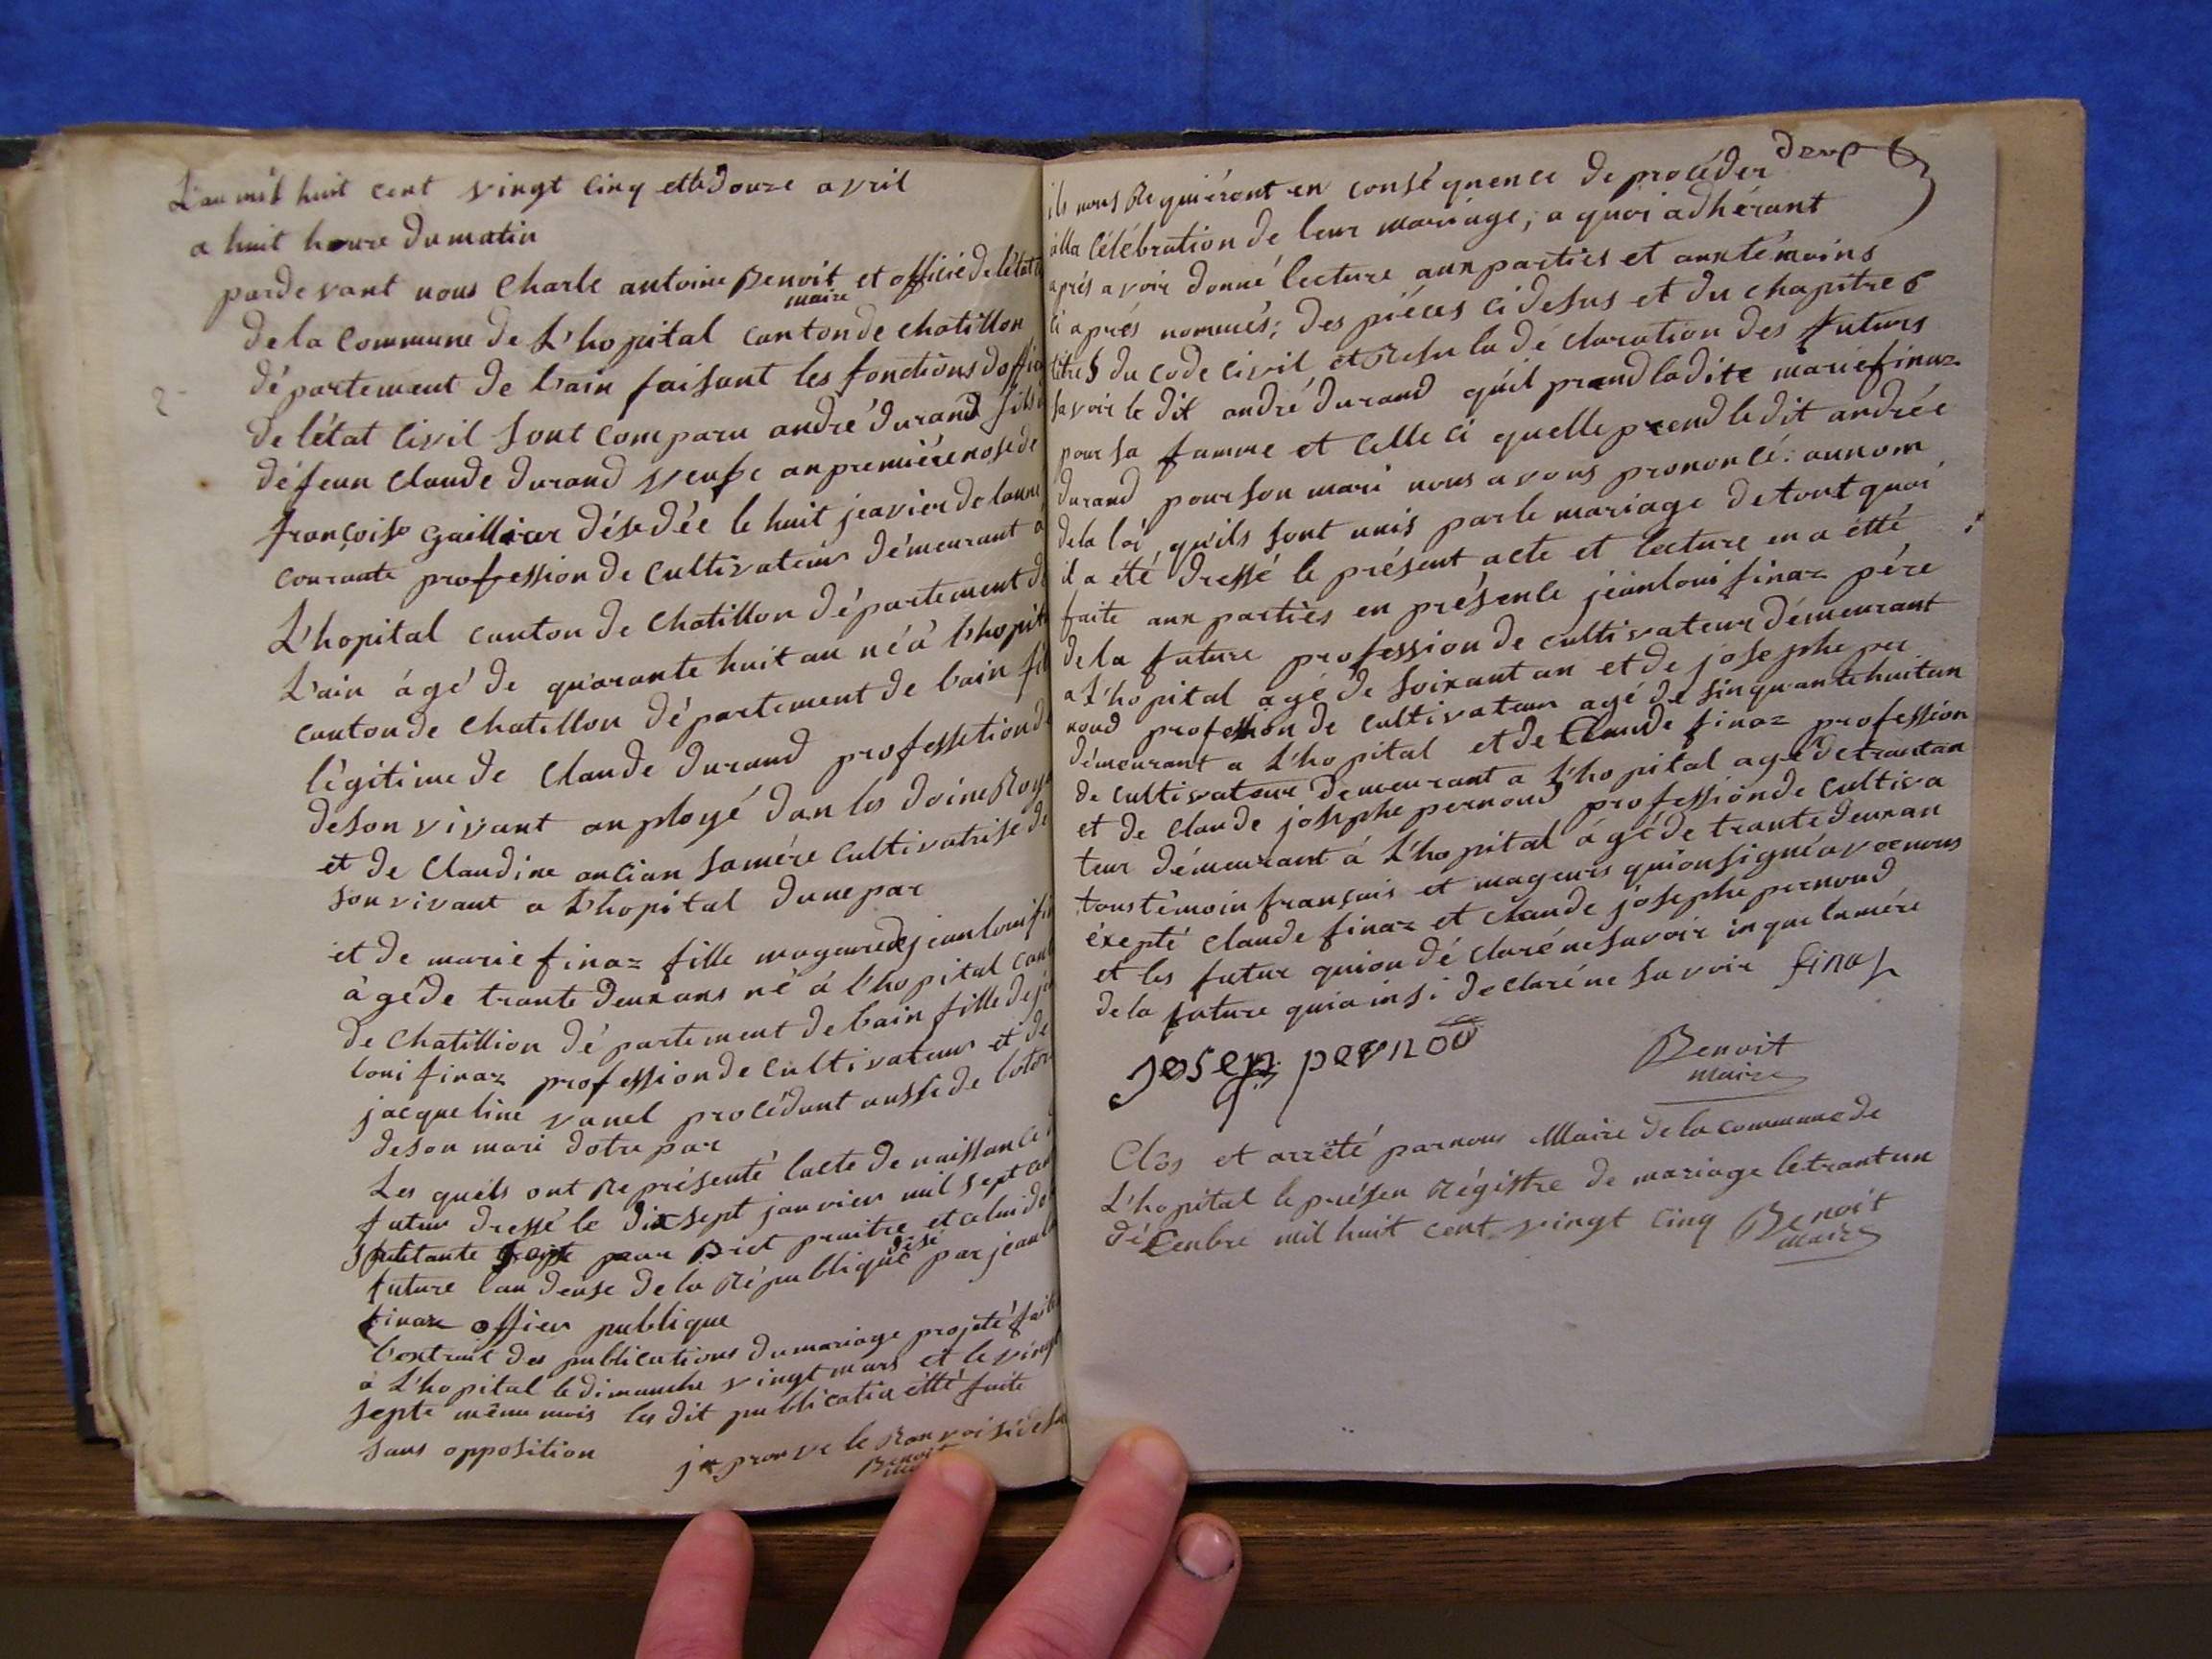 L'an mil huit cent vingt cinq et le douze avril
a huit heure du matin
pardevant nous Charle antoine Benoit maire et officié de létat
de la Commune de L'hopital canton de chatillon
département de l'ain faisant les fonctions d'offi
de létat civil sont comparu andré durand fils
défeun claude durand veufe an premiére nose de
françoise gaillier désédée le huit jeavier de lanné
courante profession de cultivateur démeurant a
L'hopital canton de chatillon département de
L'ain âgé de quarante huit an né a l'hopit
canton de chatillon département de l'ain fil
légitime de claude durand professetion de
deson vivant anployé dan les doine Roy
et de Claudine ancian samére cultivatrise de
son vivant a L'hopital dune par
et de marie finaz fille mageure de jean loui fi
àgéde trante deux ans né à l'hopital cant
de Chatillion département de l'ain fille de je
loui finaz profession de cultivateur et de
jacqueline vanel procédant aussi de lotor
deson mari dotre par
Les quéls ont Représenté l'acte de naissance
futur dressé le dixsept janvier mil sept cen
septante septe pour Bret praitre et celui de
future l'an deuse de la République drésé par jean
finaz offier publique
l'extrait des publications du mariage projeté fait
à L'hopital le dimanche vingt mars et le vingt
septe même mois les dit publicatin étté faite
sans opposition
japrouve le Ranvoi sidesu
Benoit
2
deup
ils nous Requiéront en conséquence de procéder
àlla Célébration de leur mariage, a quoi adhérant
aprés avoir donné lecture aux parties et aux témoins
ci aprés nommés; des piéces ci desus et du chapitre 6
titre 5 du code civil et Resu la déclaration des futurs
savoir le dit andré durand qu'il prend ladite marie finaz
pour sa famme et Celle ci quelle prend le dit andrée
durand pour son mari nous avons prononcé: aunom
dela loi qu'ils sont unis par le mariage detout quoi
il a été dressé le présent acte et lecture en a étté
faite aux parties en présence jéanloui finaz pére
dela future profession de cultivateur démeurant
a L'hopital agé de soixant an et de josephe per
noud profession de cultivateur agé de sinquantehuitan
démeurant a L'hopital et de Claude finaz profession
de cultivateur demeurant a L'hopital agé de trantan
et de claude josephe pernoud profession de cultiva
teur démeurant á L'hopital ágé de trante deux an
tous témoin français et mageurs quion signé avec nous
éxepté claude finaz et claude josephe pernoud
et les futur quion déclaré ne savoir insi que lamére
de la future quia insi declaré ne savoir finaz
josep pernod
Benoit
maire
Clos et arrêté par nous Maire de la commune de
L'hopital le présen Régistre de mariage le trantun
décenbre mil huit cent vingt cinq Benoit
maire